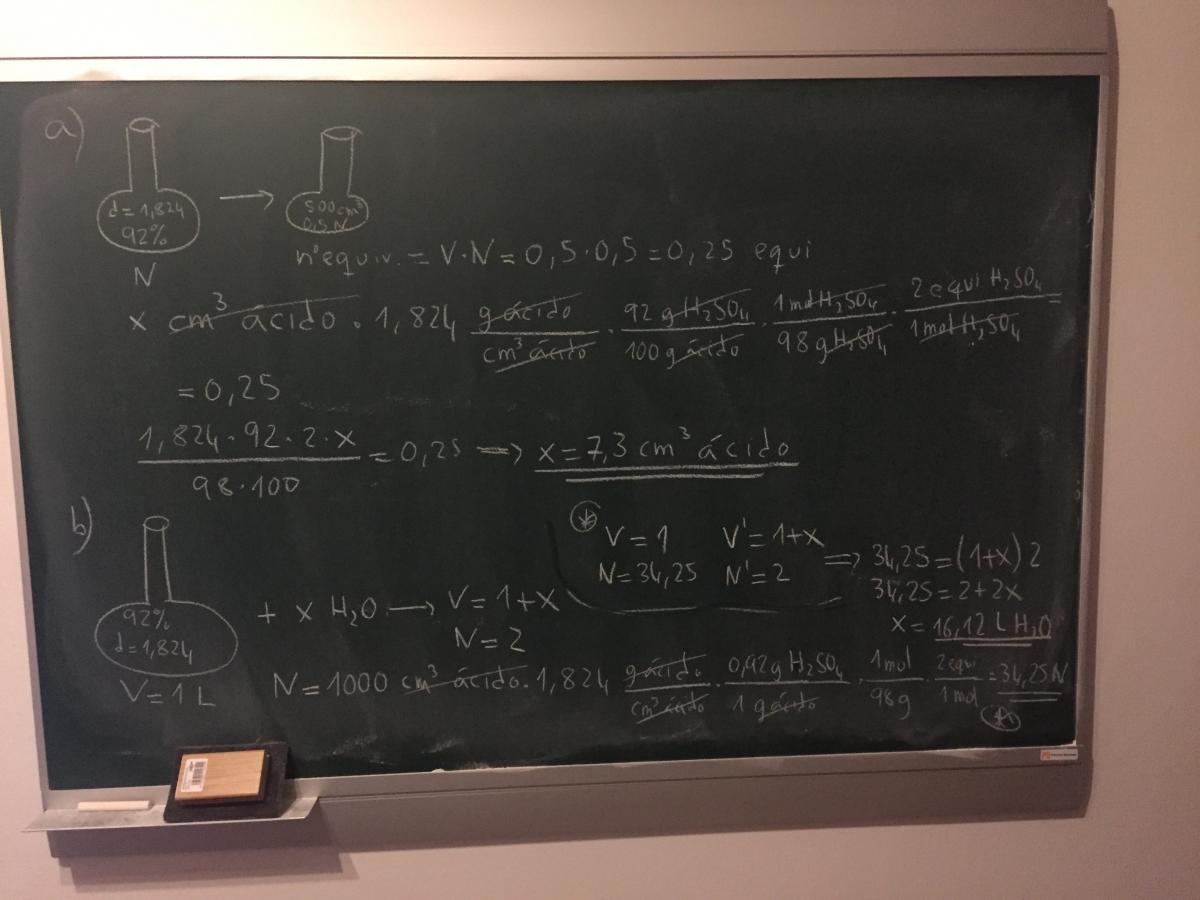 a)
d = 1,824
92%
N
→
500 cm³
0,5 N
nº equiv. = V·N = 0,5·0,5 = 0,25 equi
x cm³ ácido · 1,824 g ácido/cm³ ácido · 92 g H₂SO₄/100 g ácido · 1 mol H₂SO₄/98 g H₂SO₄ · 2 equi H₂SO₄/1 mol H₂SO₄ =
= 0,25
1,824·92·2·x/98·100 = 0,25 ⇒ x = 7,3 cm³ ácido
b)
92%
d = 1,824
V = 1 L
+ x H₂O → V = 1+x
N = 2
* V = 1 V' = 1+x
N = 34,25 N' = 2
⇒ 34,25 = (1+x) 2
34,25 = 2+2x
x = 16,12 L H₂O
N = 1000 cm³ ácido · 1,824 g ácido/cm³ ácido · 0,92 g H₂SO₄/1 g ácido · 1 mol/98 g · 2 equi/1 mol = 34,25 N
*